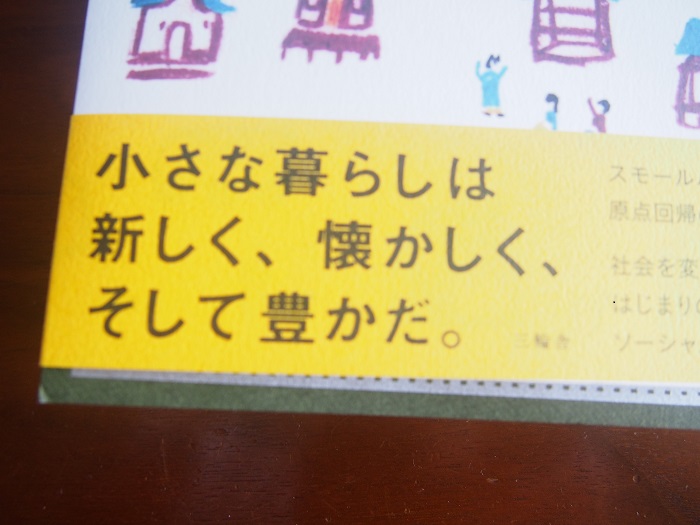 小さな暮らしは
新しく、懐かしく、
そして豊かだ。
三輪舎
スモール
原点回帰
社会を変
はじまりの
ソーシャ